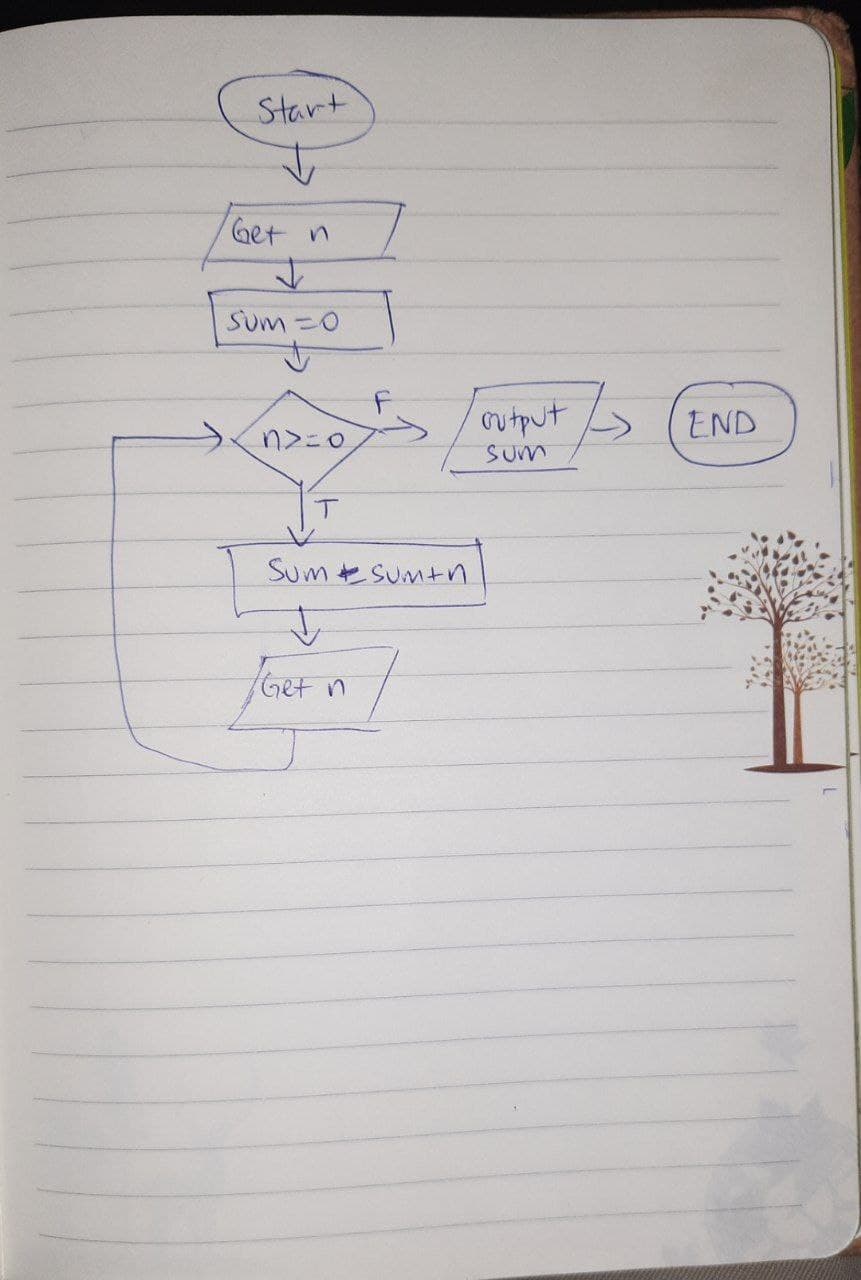 Start
Get n
sum = 0
n>=0
F
output
sum
END
T
Sum = sum+n
Get n